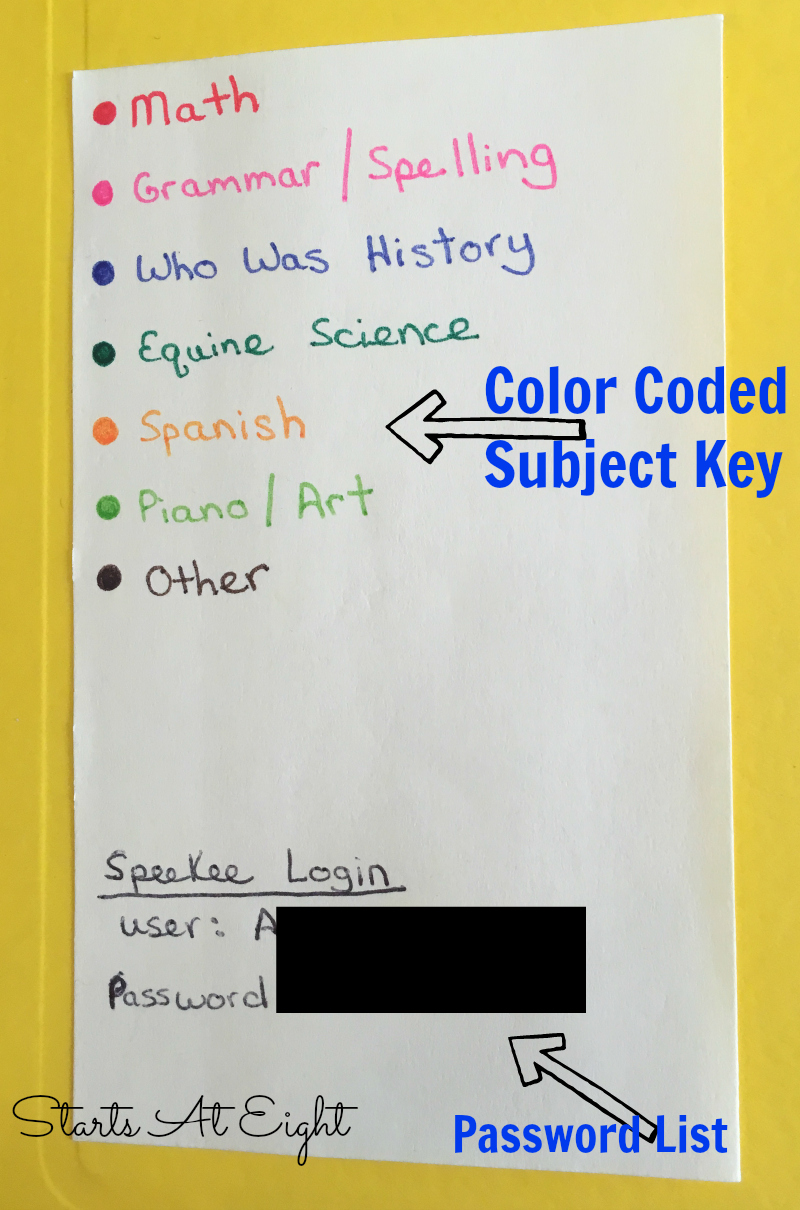 Math
Grammar / Spelling
Who Was History
Equine Science
Color Coded
Spanish
Subject Key
Piano / Art
Other
SpeeKee Login
user: A
Password
Starts At Eight
Password List